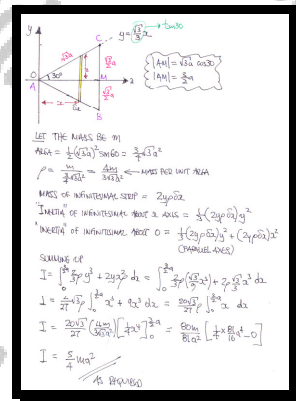 y = √3/3 x → tan30
C
√3a
√3/2 a
|AM| = √3a cos30
|AM| = 3/2 a
O
A
30°
y
M
x
√3/2 a
δx
B
LET THE MASS BE m
AREA = ½(√3a)² sin60 = ¾√3a²
ρ = m / (¾√3a²) = 4m / (3√3a²) ← MASS PER UNIT AREA
MASS OF INFINITESIMAL STRIP = 2yρδx
"INERTIA" OF INFINITESIMAL ABOUT X AXIS = ⅓(2yρδx)y²
"INERTIA" OF INFINITESIMAL ABOUT O = ⅓(2yρδx)y² + (2yρδx)x²
(PARALLEL AXES)
SUMMING UP
I = ∫₀^(3/2 a) ⅔ρy³ + 2yρx² dx = ∫₀^(3/2 a) ⅔ρ(√3/9 x³) + 2ρ √3/3 x³ dx
I = 2√3/27 ρ ∫₀^(3/2 a) x³ + 9x³ dx = 20√3/27 ρ ∫₀^(3/2 a) x³ dx
I = 20√3/27 (4m / (3√3a²)) [¼x⁴]₀^(3/2 a) = 80m / 81a² [¼ × 81/16 a⁴ - 0]
I = 5/4 ma²
AS REQUIRED